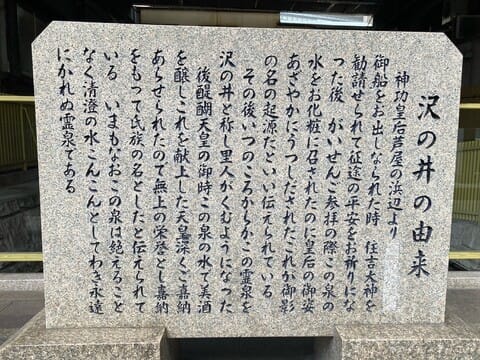 沢の井の由来
神功皇后芦屋の浜辺より
御船をお出しなられた時 住吉大神を
勧請せられて征途の平安をお祈りにな
った後 がいせんご参拝の際この泉の
水をお化粧に召されたのに皇后の御姿
あざやかにうつしだされたこれが御影
の名の起源だといい伝えられている
その後いつのころからかこの霊泉を
沢の井と称し里人がくむようになった
後醍醐天皇の御時この泉の水で美酒
を醸しこれを献上した天皇深くご嘉納
あらせられたので無上の栄誉とし嘉納
をもって氏族の名としたと伝えられて
いる いまもなおこの泉は絶えること
なく清澄の水こんこんとしてわき永遠
にかれぬ霊泉である